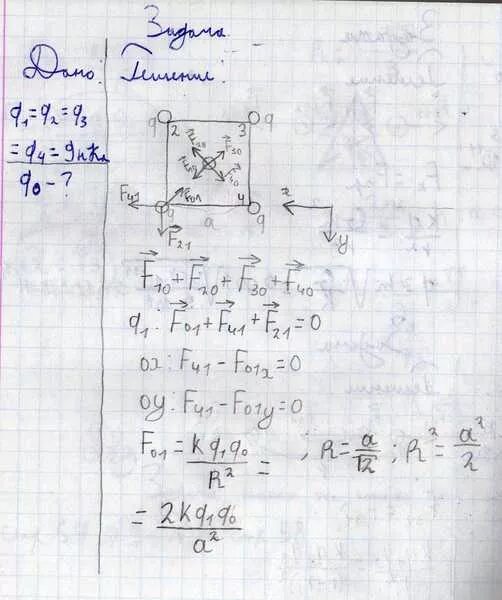 Задача
Дано: Решение:
q₁=q₂=q₃
=q₄=9нКл
q₀-?
q 2 3 q
F₂₀ F₃₀
F₁₀ F₄₀
F₄₁ F₀₁ 4
q a q x
F₂₁ y
F₁₀+F₂₀+F₃₀+F₄₀
q₁: F₀₁+F₄₁+F₂₁=0
ox: F₄₁-F₀₁x=0
oy: F₄₁-F₀₁y=0
F₀₁=kq₁q₀/R²= ; R=a/√2; R²=a²/2
=2kq₁q₀/a²